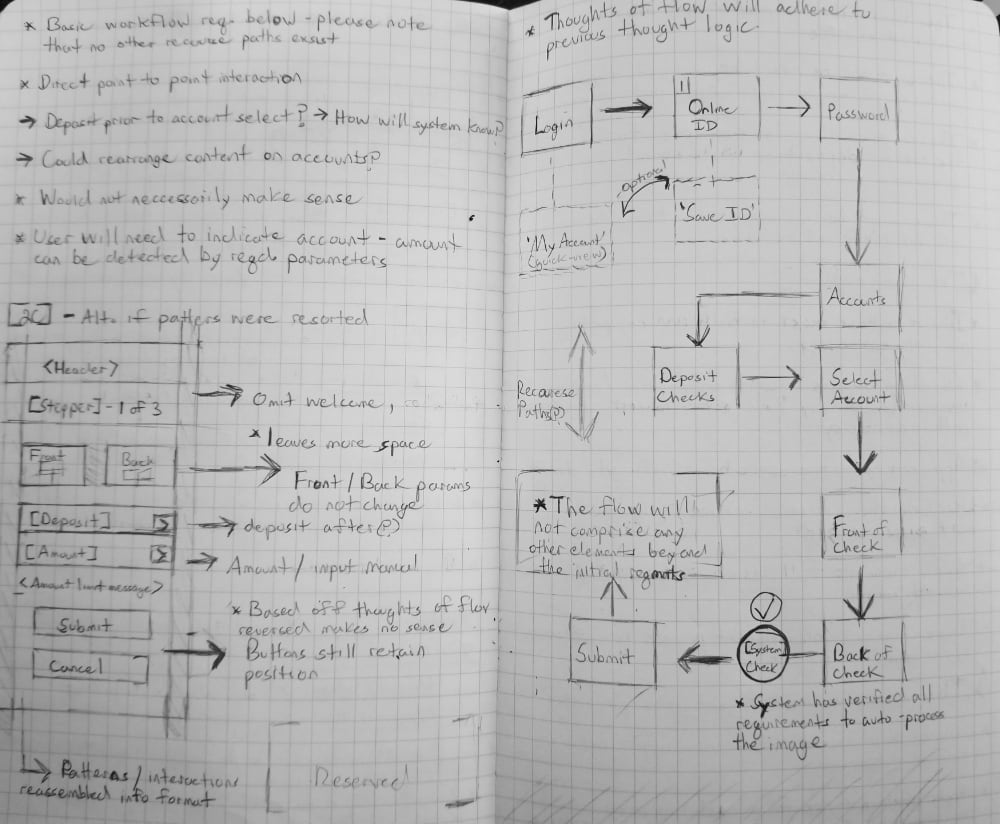 * Basic workflow req. below - please note
that no other recourse paths exsist
* Direct point to point interaction
→ Deposit prior to account select? → How will system know?
→ Could rearrange content on accounts?
* Would not neccessorily make sense
* User will need to indicate account - amount
can be detected by reqd. parameters
[2C] - Alt. if patters were resorted
<Header>
[Stepper] - 1 of 3
→ Omit welcome,
Front
Back
* leaves more space
→ Front / Back params
do not change
[Deposit]
→ deposit after(?)
[Amount]
→ Amount / input manual
<Amount limit message>
Submit
Cancel
* Based off thoughts of flow
reversed makes no sense
→ Buttons still retain
position
→ Patterns / interactions
reassembled into format
Reserved
* Thoughts of flow will adhere to
previous thought logic.
Login
Online
ID
Password
optional
'My Account'
(quick-view)
'Save ID'
Accounts
Deposit
Checks
Select
Account
Paths(?)
* The flow will
not comprise any
other elements beyond
the initial
Front of
Check
Back of
Check
[System]
Check
Submit
* System has verified all
requirements to auto-process
the image